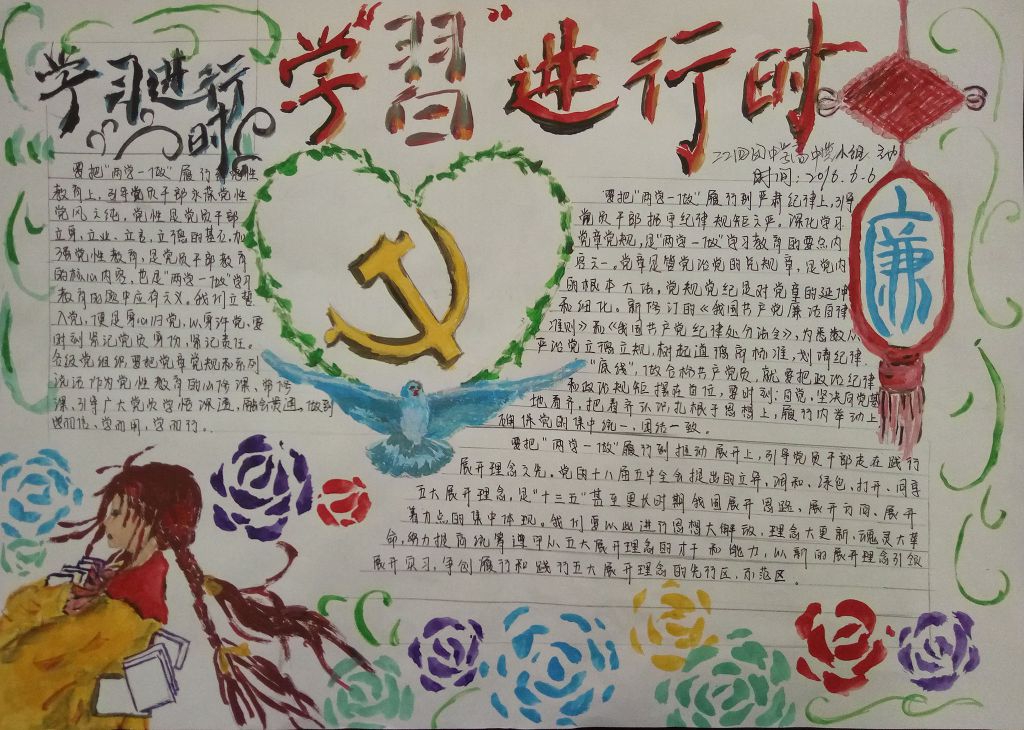 学习进行时
学“習”进行时
时间：2016.6-6
廉
要把“两学一做”履行到党性
教育上，引导党员干部永葆党性
党风之纯。党性是党员干部
立身、立业、立言、立德的基石，加
强党性教育，是党员干部教育
的核心内容，也是“两学一做”学习
教育的题中应有之义。我们立誓
入党，便是身心归党，以身许党、要
时刻紧记党员身份，紧记责任。
各级党组织要把党章党规和系列
说话作为党性教育的心修课、常修
课，引导广大党员学悟深透，融会贯通，做到
学而信、学而用、学而行。
要把“两学一做”履行到严肃纪律上，引导
党员干部扼守纪律规矩之严。深化学习
党章党规，是“两学一做”学习教育的要点内
容之一。党章是管党治党的总规章，是党内
的根本大法，党规党纪是对党章的延伸
和细化。新修订的《我国共产党廉洁自律
准则》和《我国共产党纪律处分法令》，为悉数从
严治党立德立规，树起道德高标准，划清纪律
“底线”，做合格共产党员，就要把政治纪律
和政治规矩摆在首位，要时刻、自觉、坚决向党
地看齐，把看齐认识扎根于思想上，履行内举动上
确保党的集中统一，团结一致。
要把“两学一做”履行到推动展开上，引导党员干部走在践行
展开理念之先。党的十八届五中全会提出的立异、调和、绿色、打开、同享
五大展开理念，是“十三五”甚至更长时期我国展开思路、展开方向、展开
着力点的集中体现。我们要以此进行思想大解放，理念大更新、魂灵大革
命，努力提高统筹遵守从五大展开理念的才干和能力，以新的展开理念引领
展开实习，争创履行和践行五大展开理念的先行区、示范区。